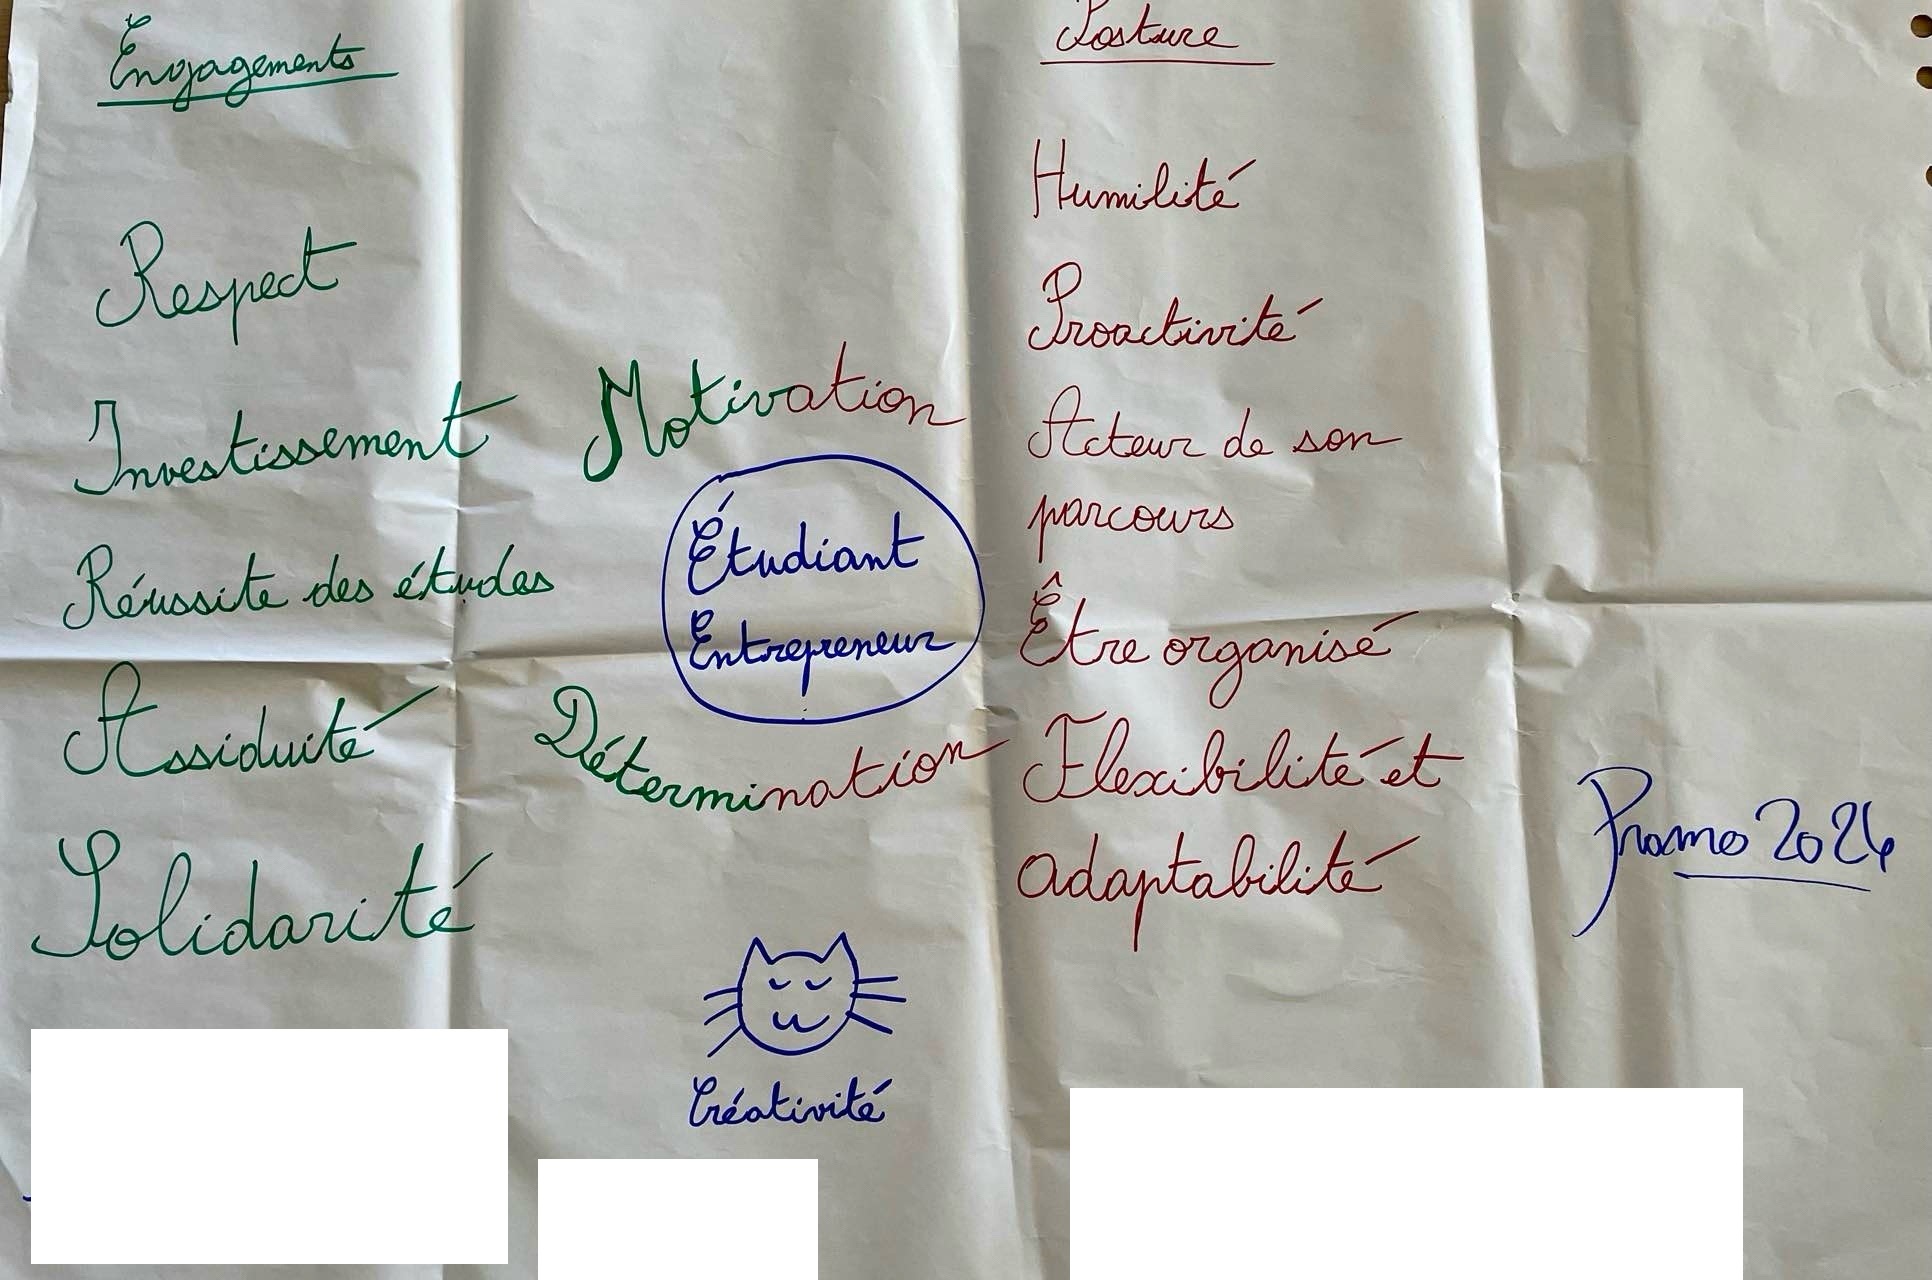 Engagements
Respect
Investissement
Réussite des études
Assiduité
Solidarité
Motivation
Étudiant
Entrepreneur
Détermination
Créativité
Posture
Humilité
Proactivité
Acteur de son
parcours
Être organisé
Flexibilité et
adaptabilité
Promo 2026